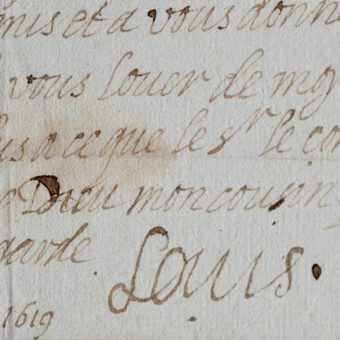 mis et a vous donne
vous louer de moy
us a ce que le Sr le con
Dieu mon cousin
garde
Louis.
1619